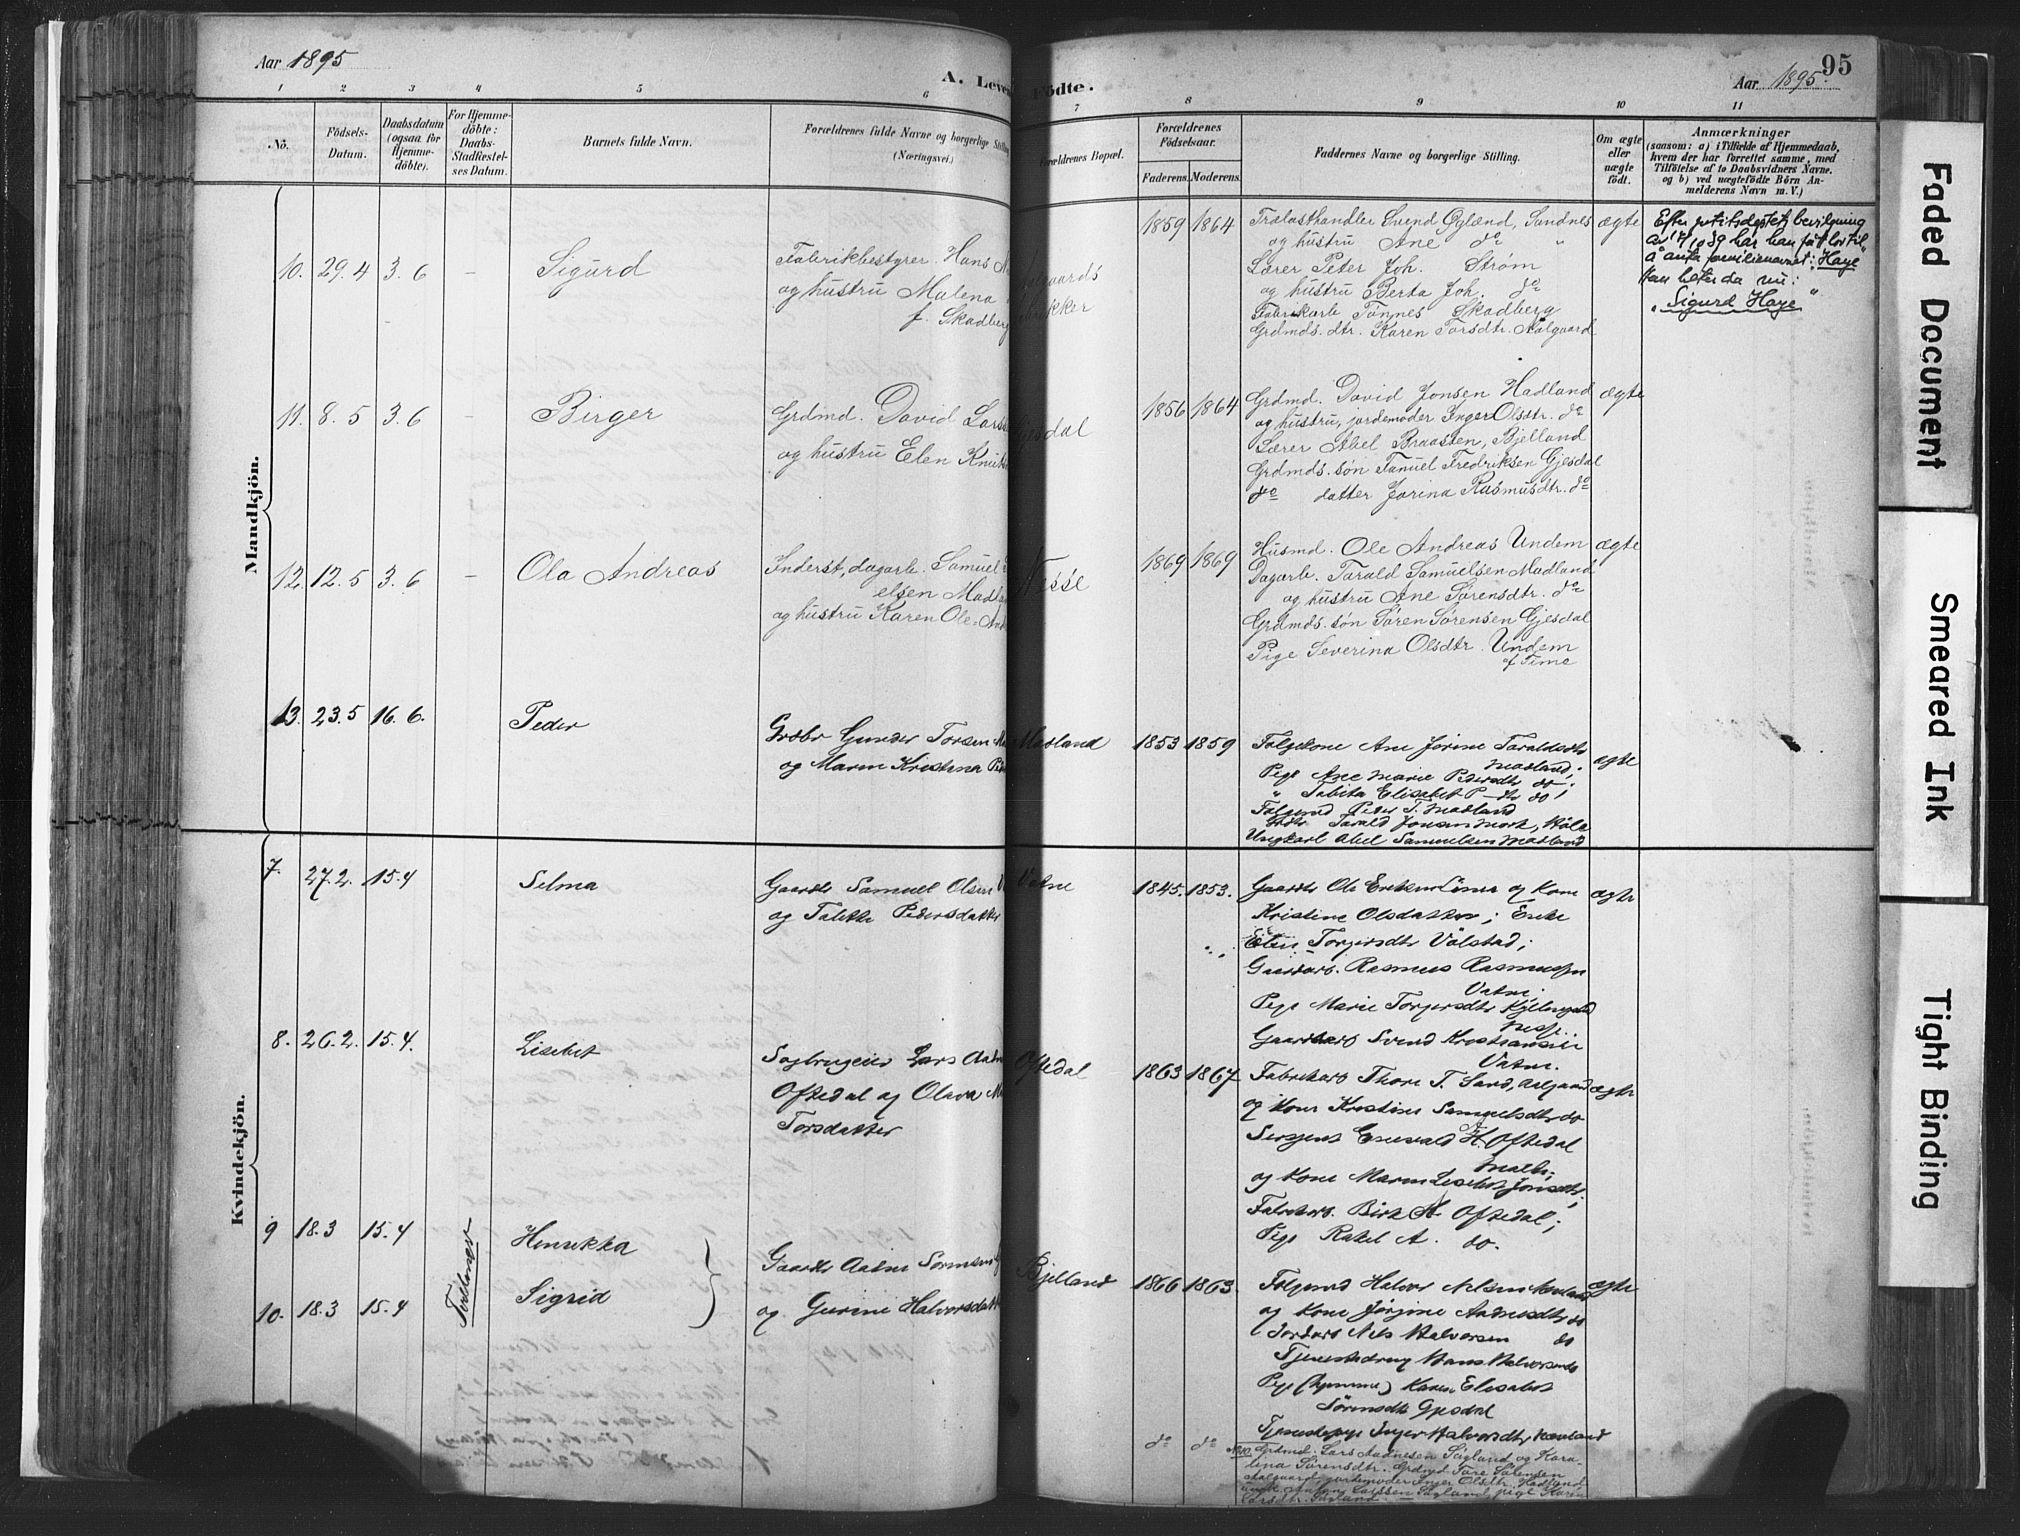 Aar 1895
A. Leven
Födte.
Aar 1895.
95
1 2 3 4 5 6 7 8 9 10 11
Nö.
Födsels-
Datum.
Daabsdatum
(ogsaa for
Hjemme-
döbte).
For Hjemme-
döbte:
Daabs-
Stadfæstel-
ses Datum.
Barnets fulde Navn.
Forældrenes fulde Navne og borgerlige Stilling
(Næringsvei.)
Forældrenes Bopæl.
Forældrenes
Födselsaar.
Faderens. Moderens.
Faddernes Navne og borgerlige Stilling.
Om ægte
eller
uægte
födt.
Anmærkninger
(saasom: a) i Tilfælde af Hjemmedaab,
hvem der har forrettet samme, med
Tilföielse af to Daabsvidners Navne.
og b) ved uægtefödte Börn An-
melderens Navn m. V.)
Mandkjön.
10. 29.4 3.6 - Sigurd
Fabrikbestyrer. Hans
og hustru Malena
f. Skadberg
1859 1864
Trælasthandler Svend Øglænd, Sandnes
og hustru Ane do "
Lærer Peter Joh. Strøm
og hustru Berta Joh. do
Fabrikarb Tønnes Skadberg
Grdmds. dtr. Karen Torsdtr. Aalgaard
ægte
Efter bevilgning
av 17/10 39 har han fåt lov til
å anta familienavnet: "Haye"
han heter da nu:
"Sigurd Haye"
11. 8.5 3.6 - Birger
Grdmd. David Lars
og hustru Elen Knuts
Gjesdal
1856 1864
Grdmd. David Jonsen Hadland
og hustru, jordemoder Inger Olsdtr. do
Lærer Abel Braasten, Bjelland
Grdmds. søn Tanuel Fredriksen Gjesdal
do datter Jorina Rasmusdtr. do
ægte
12. 12.5 3.6 - Ola Andreas
Inderst, dagarb. Samuel
elsen Madla
og hustru Karen Ole-And
Nesse
1869 1869
Husmd. Ole Andreas Undem
Dagarb. Tarald Samuelsen Madland
og hustru Ane Sørensdtr. do
Grdmds. søn Søren Sørensen Gjesdal
Pige Severina Olsdtr. Undem
af Time
ægte
13. 23.5 16.6. Peder
Grdbr Gunder Torsen
og Maren Kristina
Madland
1853 1859
Folgekone Ane Jorine Taraldsdtr
Madland;
Pige Ane Marie Pedersdtr do;
" Tabita Elisabet P-dtr do;
Folgemd Peder T. Madland
Tarald Jonsen Mork,
Ungkarl Abel Samuelsen Madland
ægte
Kvindekjön.
7. 27.2. 15.4 Selma
Gaardbr Samuel Olsen
og Talette Pedersdatter
Vatne
1845. 1853.
Gaardbr Ole Eriksen og kone
Kristine Olsdatter; Enke
Elen Torgersdtr Vølstad;
Gaardbr. Rasmus Rasmussen
Vatne;
Pige Marie Torgersdtr
Gaardbr Svend Kristiansen
Vatne.
ægte
8. 26.2. 15.4. Lisebet
Sagbrugeier Lars Aadn
Oftedal og Olava
Torsdatter
Oftedal
1863 1867
Fabrikarb Thore T. Sand, Aalgaard
og kone Kristine Samuelsdtr do
Sersjent Enevald H. Oftedal
og kone Maren Lisebet Jonsdtr;
Fabrikarb. Birk A. Oftedal;
Pige Rakel A. do.
ægte
9 18.3 15.4 Henrikka
10. 18.3 15.4 Sigrid
Tvillinger
Gaardbr Aadne Sørensen
og Gurine Halvorsdatt
Bjelland
1866 1863.
Folgemd Halvor Nilsen
og kone Jørgine Aadnesdtr do
Jordarb Nils Halvorsen do
Tjenestedreng Hans Halvorsen do
Pige (hjemme) Karen Elisabet
Sørensdtr Gjesdal
Tjenestepige Inger Halvorsdtr
ægte
do do
No 10. Grdmd. Lars Aadnesen Sigland og Kara-
lena Sørensdtr. Tore Sørensen
Aalgaard, jordemoder Inger Olsdtr. Hadland
Larssen Sigland, pige Karen
Larsdtr. Sigland.
Faded Document
Smeared Ink
Tight Binding